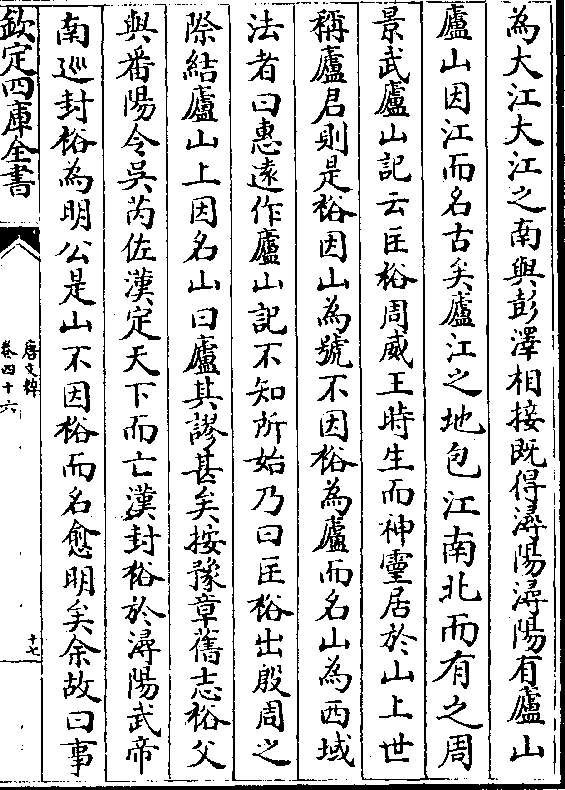 為大江大江之南與彭澤相接既得潯陽潯陽有廬山
廬山因江而名古矣廬江之地包江南北而有之周
景武廬山記云匡裕周威王時生而神靈居於山上世
稱廬君則是裕因山為號不因裕為廬而名山為西域
法者曰惠遠作廬山記不知所始乃曰匡裕出殷周之
際結廬山上因名山曰廬其謬甚矣按豫章舊志裕父
與番陽令吳芮佐漢定天下而亡漢封裕於潯陽武帝
南廵封裕為明公是山不因裕而名愈明矣余故曰事
欽定四庫全書
唐文粹
卷四十六
十七